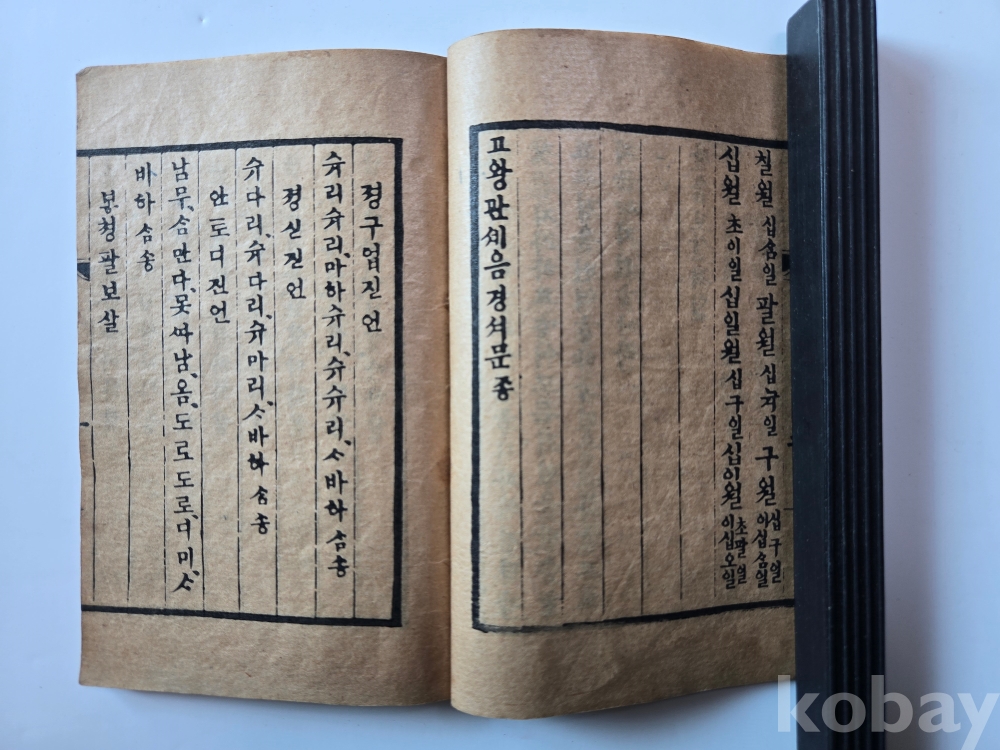 칠월 십삼일 팔월 십륙일 구월 십구일 이십삼일
십월 초이일 십일월 십구일 십이월 초팔일 이십오일
고왕관셰음경셔문 죵
졍구업진언
슈리슈리、마하슈리、슈슈리、ᄉᆞ바하 삼송
졍신진언
슈다리、슈다리、슈마리、ᄉᆞ바하 삼송
안토디진언
남무、삼만다、못ᄯᅡ남、옴、도로도로、디미、ᄉᆞ
바하 삼송
봉쳥팔보살
kobay